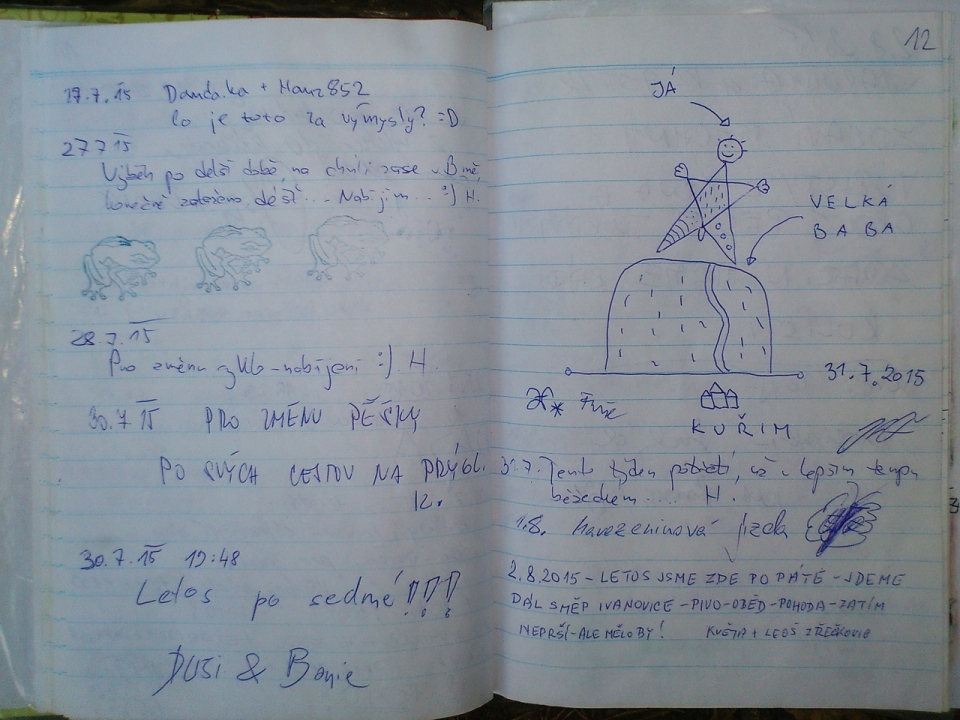 27.7.15 Danda.ka + Hanz852
Co je toto za výmysly? =D
27 7 15
Výběh po delší době, na chvíli zase v Brně,
konečně zataženo, déšť... Nabíjím... :) H.
28.7.15
Pro změnu cyklo-nabíjení :) H.
30.7 15 PRO ZMĚNU PĚŠKY
PO SVÝCH CESTOU NA PRÝGL.
30.7.15 19:48
Letos po sedmé!!!
DUSI & Bonie
12
JÁ
VELKÁ
BABA
31.7.2015
KUŘIM
31.7. Tento týden potřetí, už v lepším tempu
během .... H.
1.8. narozeninová jízda
2.8.2015 - LETOS JSME ZDE PO PÁTÉ - JDEME
DÁL SMĚR IVANOVICE - PIVO - OBĚD - POHODA - ZATÍM
NEPRŠÍ - ALE MĚLO BY! KVĚTA + LEOŠ Z ŘEČKOVIC